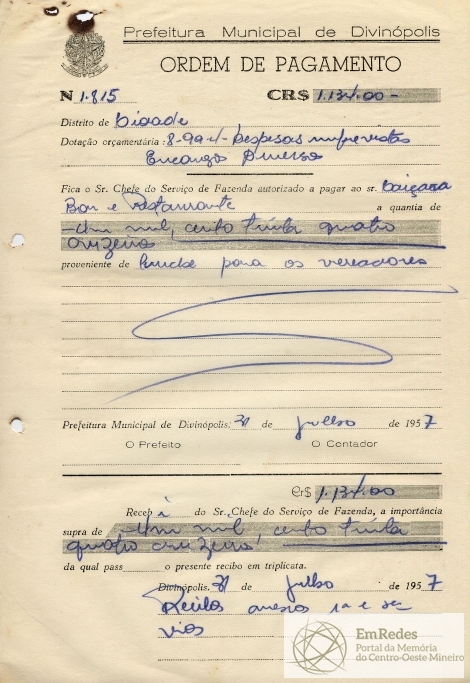 Prefeitura Municipal de Divinópolis
ORDEM DE PAGAMENTO
N 1.815 CR$ 1.134.00 -
Distrito de Cidade
Dotação orçamentária: 8-99-4 - Despesas imprevistas
Encargos Diversos
Fica o Sr. Chefe do Serviço de Fazenda autorizado a pagar ao sr. Caiçara
Bar e Restaurante a quantia de
- Um mil, cento trinta quatro
cruzeiros
proveniente de lunche para os vereadores
Prefeitura Municipal de Divinópolis, 31 de julho de 1957
O Prefeito O Contador
Cr$ 1.134.00
Recebi do Sr. Chefe do Serviço de Fazenda, a importância
supra de - Um mil cento trinta
quatro cruzeiros,
da qual pass o presente recibo em triplicata.
Divinópolis, 31 de julho de 1957
Recibos anexos 1a e
vias
EmRedes
Portal da Memória
do Centro-Oeste Mineiro